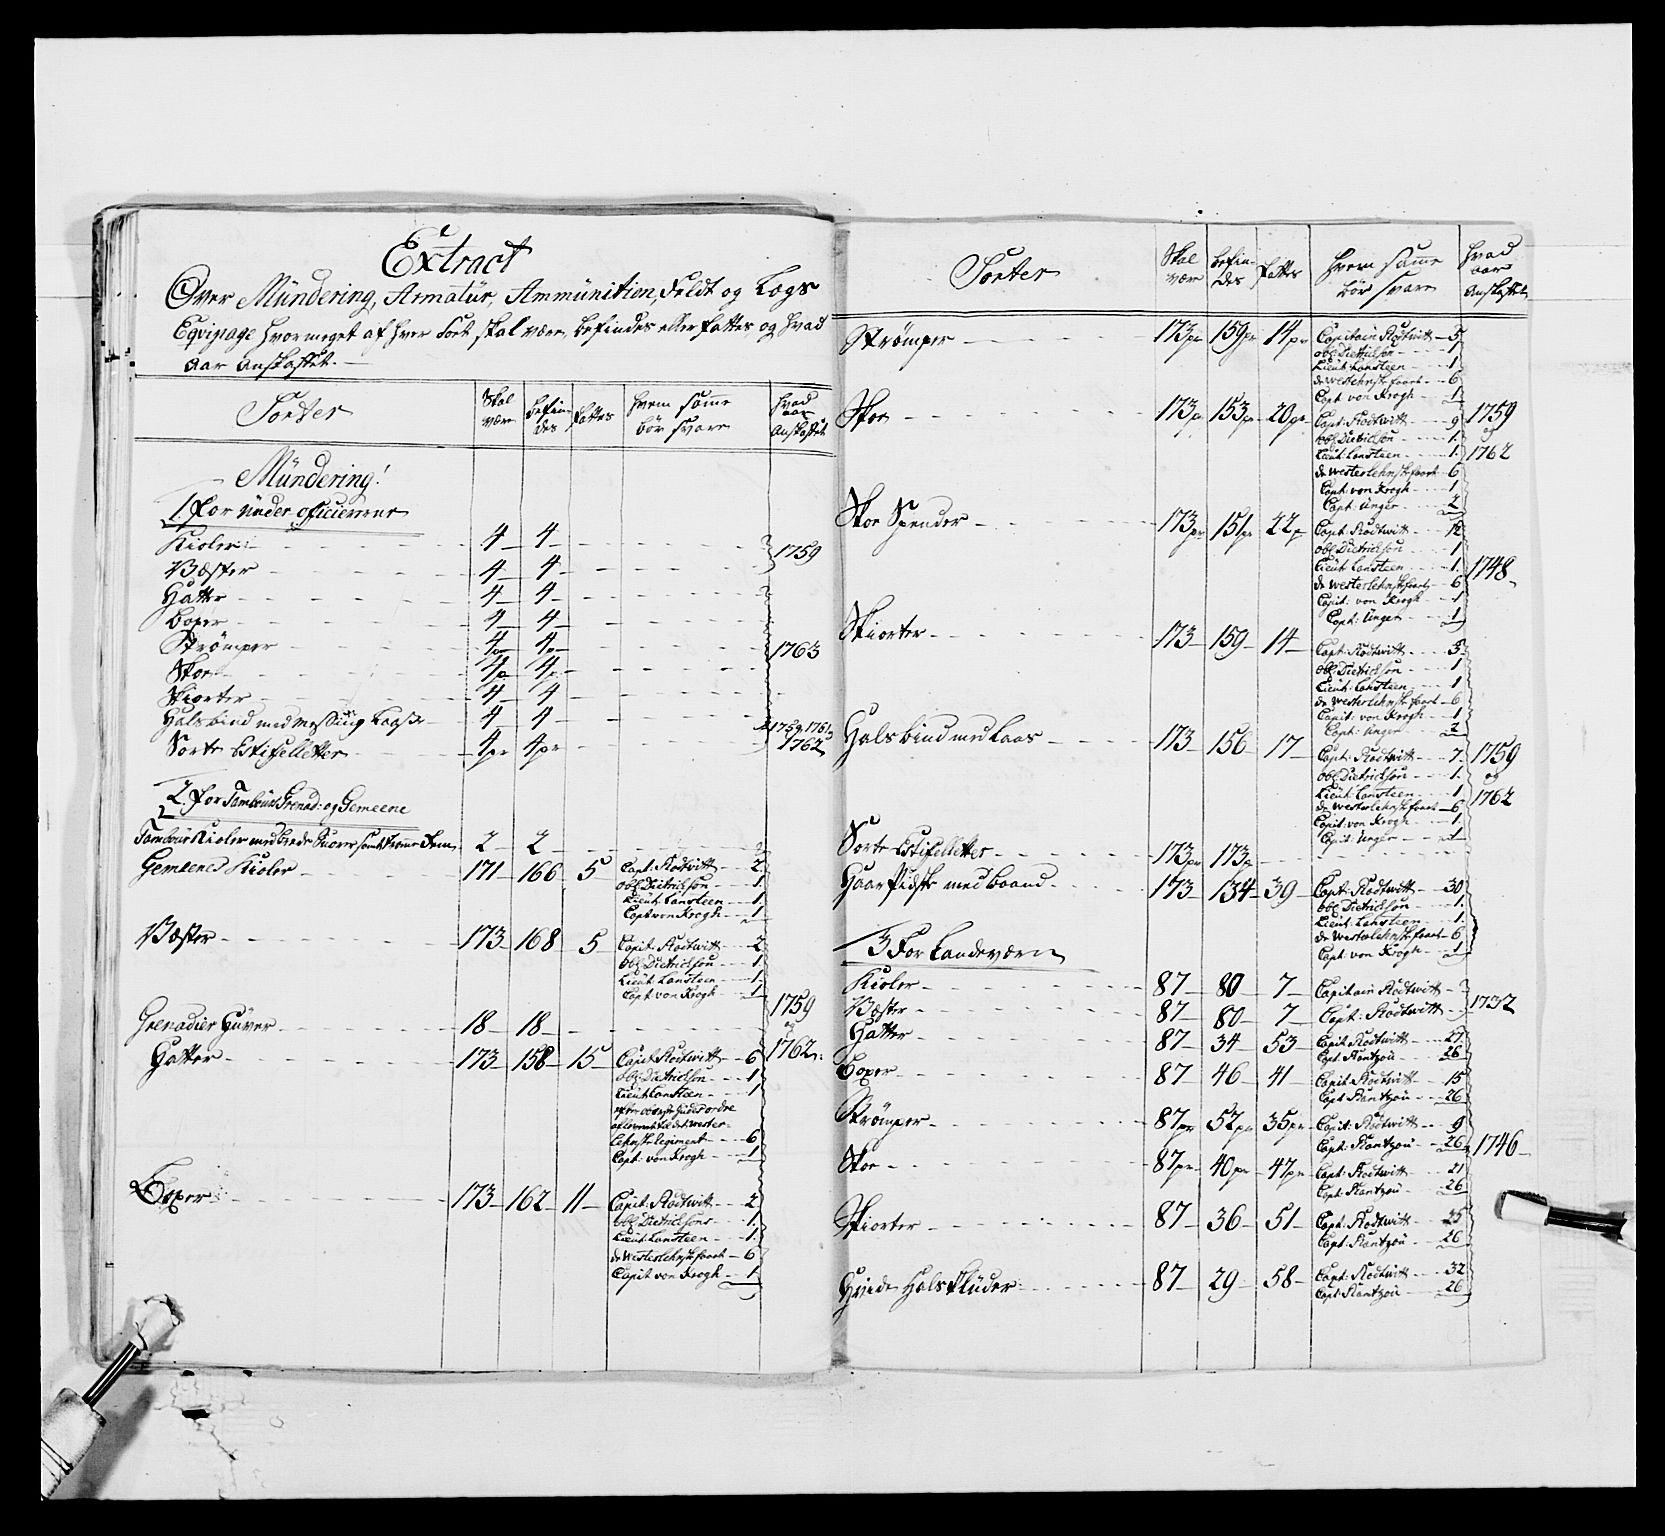 Extract
Over Mündering, Armatür, Ammünition, Feldt og Logs
Eqvipage hvor meget af hver Sort skal være, befindes eller fattes, og hvad
Aar Anskaffet.
Sorter | Skal være | befindes | fattes | hvem samme bør svare | hvad aar Anskaffet
Mündering!
1. For Under officierene
Kioler 4 4
1759
Væster 4 4
Hatter 4 4
Boxer 4 4
Strømper 4pr 4pr
1763
Skoe 4p 4p
Skiorter 4 4
Halsbind med Messing Laase 4 4
1759, 1761
Sorte Estifelletter 4pr 4pr
1762
2. For Tambour, Grenad: og Gemeene
Tambour Kioler med brede Snorer 2 2
Gemeene Kioler 171 166 5 Capt: Rodtwitt 2
Obl: Dietrichson 1
Lieut: Lansteen 1
Capt von Krogh 1
Væster 173 168 5 Capit: Rodtwitt 2
Obl: Dietrichson 1
Lieut: Lansteen 1
Capt: von Krogh 1
1759
og
1762
Grenadier Huver 18 18
Hatter 173 158 15 Capit: Rodtwitt 6
Obl: Dietrichson 1
Lieut: Lansteen 1
efter ordre
Wester-
lehnske Regiment 6
Capt: von Krogh 1
Boxer 173 162 11 Capit: Rodtwitt 2
Obl: Dietrichson 1
Lieut: Lansteen 1
de Westerlehnske 6
Capit von Krogh 1
Sorter | Skal være | befindes | fattes | hvem samme bør svare | hvad aar Anskaffet
Strømper 173pr 159pr 14pr Capitain Rodtwitt 5
Obl: Dietrichson 1
Lieut: Lansteen 1
de Westerlehnske 6
Capt von Krogh 1
Skoe 173p 153pr 20pr Capt: Rodtwitt 9
Obl: Dietrichson 1
Lieut: Lansteen 1
de Westerlehnske 6
Capt: von Krogh 1
Capt: Unger 2
1759
og
1762
Skoe Spender 173pr 151pr 22p Capt: Rodtwitt 12
Obl: Dietrichson 1
Lieut: Lansteen 1
de Westerlehnske 6
Capit: von Krogh 1
Capt: Unger 1
1748
Skiorter 173 159 14 Capt: Rodtwitt 3
Obl: Dietrichson 1
Lieut: Lansteen 1
de Westerlehnske 6
Capit: von Krogh 1
Capt: Unger 2
Halsbind med Laas 173 156 17 Capt: Rodtwitt 7
Obl: Dietrichson 1
Lieut: Lansteen 1
de Westerlehnske 6
Capit: von Krogh 1
Capit: Unger 1
1759
og
1762
Sorte Estifelletter 173pr 173p
Haar Pidsk med Baand 173 134 39 Capt: Rodtwitt 30
Obl: Dietrichson 1
Lieut: Lansteen 1
de Westerlehnske 6
Capt: von Krogh 1
3 For Landeværn
Kioler 87 80 7 Capitain Rodtwitt
Væster 87 80 7 Capt: Rodtwitt
1732
Hatter 87 34 53 Capit: Rodtwitt 27
Capt: Rantzou 26
Boxer 87 46 41 Capit: Rodtwitt 15
Capt: Rantzou 26
Strømper 87pr 52pr 35pr Capit: Rodtwitt 9
Capt: Rantzou 26
1746
Skoe 87pr 40pr 47pr Capt: Rodtwitt 21
Capt: Rantzou 26
Skiorter 87 36 51 Capt: Rodtwitt 25
Capt: Rantzou 26
Hvide Halskluder 87 29 58 Capt: Rodtwitt 32
Capt: Rantzou 26